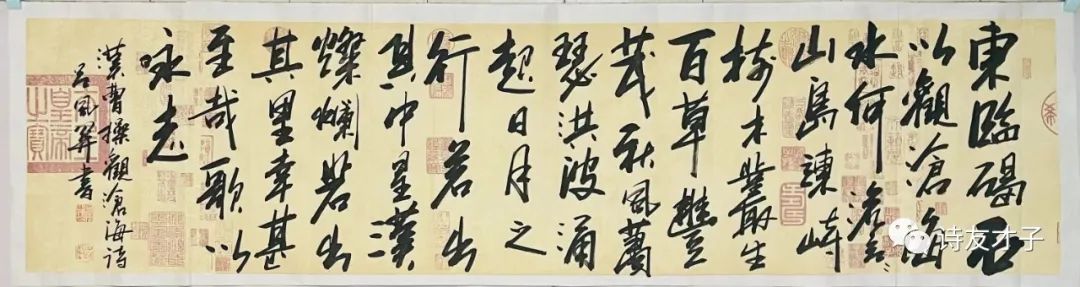 東臨碣石
以觀滄海
水何澹々
山島竦峙
樹木叢生
百草豐
茂秋風蕭
瑟洪波涌
起日月之
行若出
其中星漢
燦爛若出
其里幸甚
至哉歌以
咏志
漢曹操觀滄海詩
吕風書
诗友才子